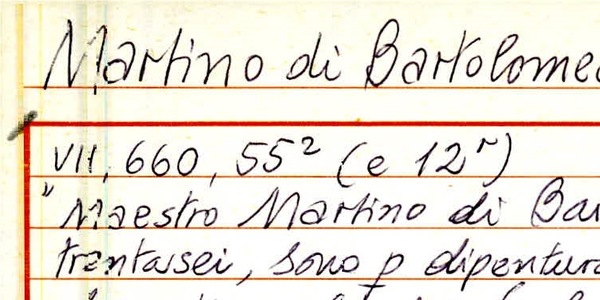 Martino di Bartolome
VII, 660, 55² (e 12ʳ)
"Maestro Martino di Bar
trentasei, sono p dipentura